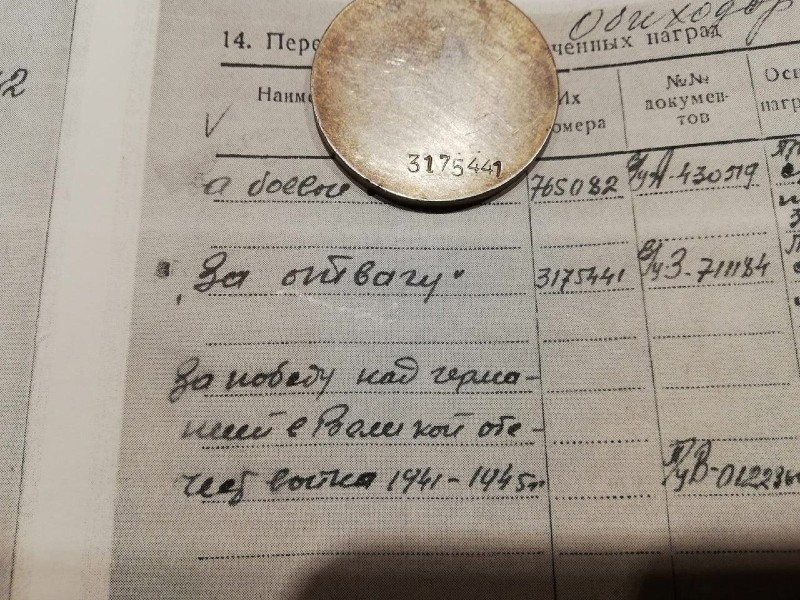 Обиходов
2
14. Пере ченных наград
Наим Их омера №№ докумен- тов Осн нагр
3175441
V
а боевы 765082 у/у А-430519
„За отвагу" 3175441 у/у З-711184
За победу над герма-
нией в Великой оте-
чест войне 1941-1945г